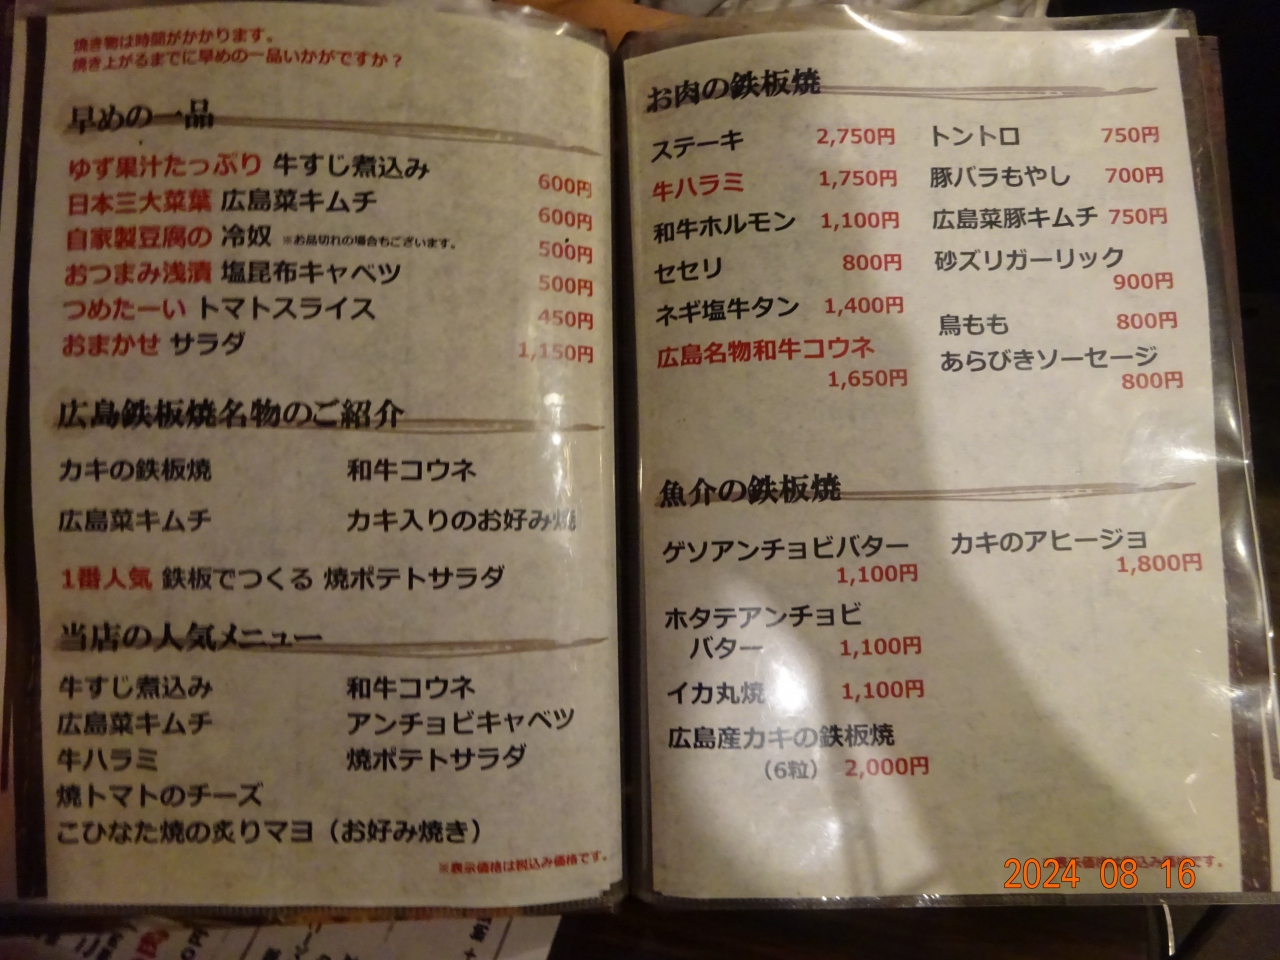 焼き物は時間がかかります。
焼き上がるまでに早めの一品いかがですか？
早めの一品
ゆず果汁たっぷり 牛すじ煮込み 600円
日本三大菜葉 広島菜キムチ 600円
自家製豆腐の 冷奴 ※お品切れの場合もございます。 500円
おつまみ浅漬 塩昆布キャベツ 500円
つめたーい トマトスライス 450円
おまかせ サラダ 1,150円
広島鉄板焼名物のご紹介
カキの鉄板焼 和牛コウネ
広島菜キムチ カキ入りのお好み焼
1番人気 鉄板でつくる 焼ポテトサラダ
当店の人気メニュー
牛すじ煮込み 和牛コウネ
広島菜キムチ アンチョビキャベツ
牛ハラミ 焼ポテトサラダ
焼トマトのチーズ
こひなた焼の炙りマヨ（お好み焼き）
※表示価格は税込み価格です。
お肉の鉄板焼
ステーキ 2,750円
牛ハラミ 1,750円
和牛ホルモン 1,100円
セセリ 800円
ネギ塩牛タン 1,400円
広島名物和牛コウネ
1,650円
トントロ 750円
豚バラもやし 700円
広島菜豚キムチ 750円
砂ズリガーリック
900円
鳥もも 800円
あらびきソーセージ
800円
魚介の鉄板焼
ゲソアンチョビバター
1,100円
ホタテアンチョビ
バター 1,100円
イカ丸焼 1,100円
広島産カキの鉄板焼
（6粒） 2,000円
カキのアヒージョ
1,800円
※表示価格は税込み価格です。
2024 08 16